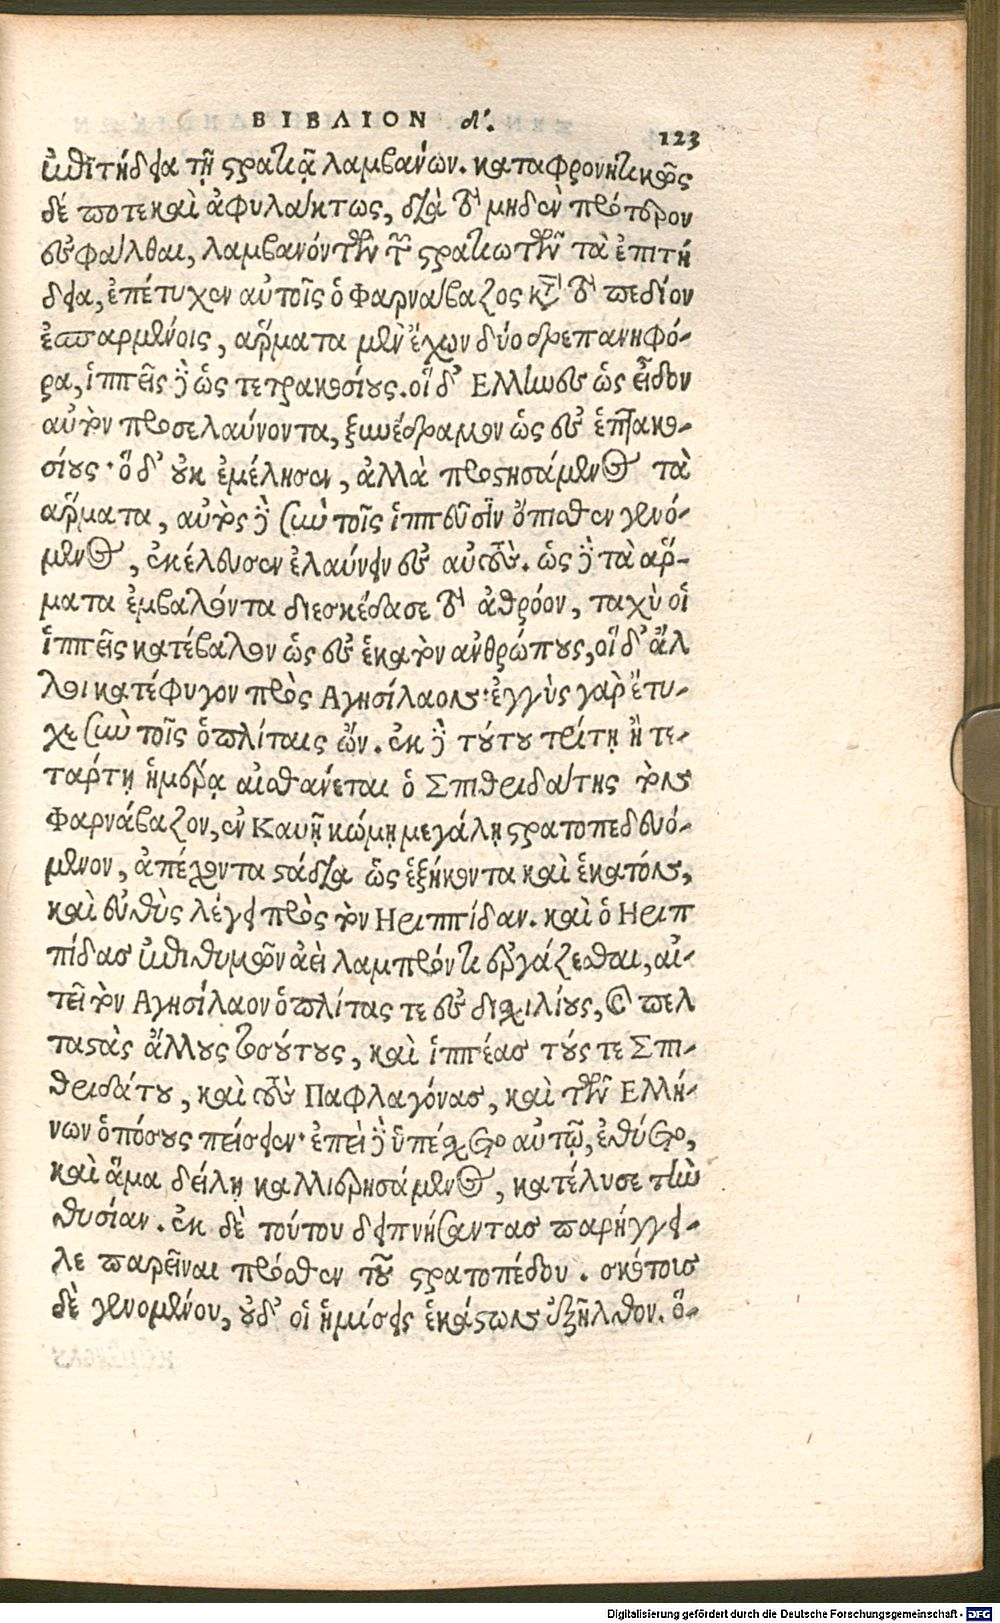 ΒΙΒΛΙΟΝ δ'.
123
ἐπιτήδεια τῇ στρατιᾷ λαμβανόντων. καταφρονητικῶς
δέ ποτε καὶ ἀφυλάκτως, διὰ τὸ μηδὲν πρότερον
ἐσφάλθαι, λαμβανόντων τῶν στρατιωτῶν τὰ ἐπιτή
δεια, ἐπέτυχεν αὐτοῖς ὁ Φαρνάβαζος κατὰ τὸ πεδίον
ἐσπαρμένοις, ἅρματα μὲν ἔχων δύο δρεπανηφό-
ρα, ἱππεῖς δὲ ὡς τετρακοσίους. οἱ δ' Ἕλληνες ὡς εἶδον
αὐτὸν προσελαύνοντα, ξυνέδραμον ὡς ἐς ἑπτακο-
σίους· ὁ δ' οὐκ ἐμέλησεν, ἀλλὰ προστησάμενος τὰ
ἅρματα, αὐτὸς δὲ σὺν τοῖς ἱππεῦσιν ὄπισθεν γενό-
μενος, ἐκέλευσεν ἐλαύνειν ἐς αὐτούς. ὡς δὲ τὰ ἅρ-
ματα ἐμβαλόντα διεσκέδασε τὸ ἀθρόον, ταχὺ οἱ
ἱππεῖς κατέβαλον ὡς ἐς ἑκατὸν ἀνθρώπους, οἱ δ' ἄλ
λοι κατέφυγον πρὸς Ἀγησίλαον· ἐγγὺς γὰρ ἔτυ-
χε σὺν τοῖς ὁπλίταις ὤν. ἐκ δὲ τούτου τρίτῃ ἢ τε-
τάρτῃ ἡμέρᾳ αἰσθάνεται ὁ Σπιθριδάτης τὸν
Φαρνάβαζον, ἐν Καυῇ κώμῃ μεγάλῃ στρατοπεδευό-
μενον, ἀπέχοντα στάδια ὡς ἑξήκοντα καὶ ἑκατόν,
καὶ εὐθὺς λέγει πρὸς τὸν Ηριππίδαν. καὶ ὁ Ηριπ
πίδας ἐπιθυμῶν ἀεὶ λαμπρόν τι ἐργάζεσθαι, αἰ-
τεῖ τὸν Ἀγησίλαον ὁπλίτας τε ἐς δισχιλίους, καὶ πελ
ταστὰς ἄλλους τοσούτους, καὶ ἱππέας τούς τε Σπι-
θριδάτου, καὶ τοὺς Παφλαγόνας, καὶ τῶν Ἑλλή-
νων ὁπόσους πείσειεν· ἐπεὶ δὲ ὑπέσχετο αὐτῷ, ἐθύετο,
καὶ ἅμα δείλῃ καλλιερησάμενος, κατέλυσε τὴν
θυσίαν. ἐκ δὲ τούτου δειπνήσαντας παρήγγει-
λε παρεῖναι πρόσθεν τοῦ στρατοπέδου. σκότους
δὲ γενομένου, οὐδ' οἱ ἡμίσεις ἑκάστων ἐξῆλθον. ὅ-